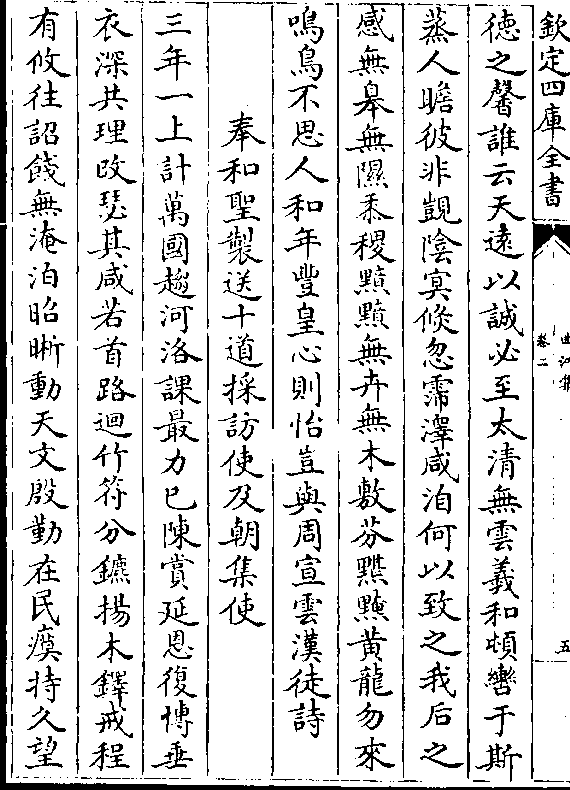 欽定四庫全書
曲江集
卷二
五
徳之馨誰云天遠以誠必至太清無雲羲和頓轡于斯
蒸人瞻彼非覬陰冥倐忽霈澤咸洎何以致之我后之
感無臯無隰黍稷黯黯無卉無木敷芬黮黮黄龍勿來
鳴鳥不思人和年豐皇心則怡豈與周宣雲漢徒詩
奉和聖製送十道採訪使及朝集使
三年一上計萬國趨河洛課最力已陳賞延恩復博垂
衣深共理改瑟其咸若首路迴竹符分鑣揚木鐸戒程
有攸往詔餞無淹泊昭晰動天文殷勤在民瘼持久望